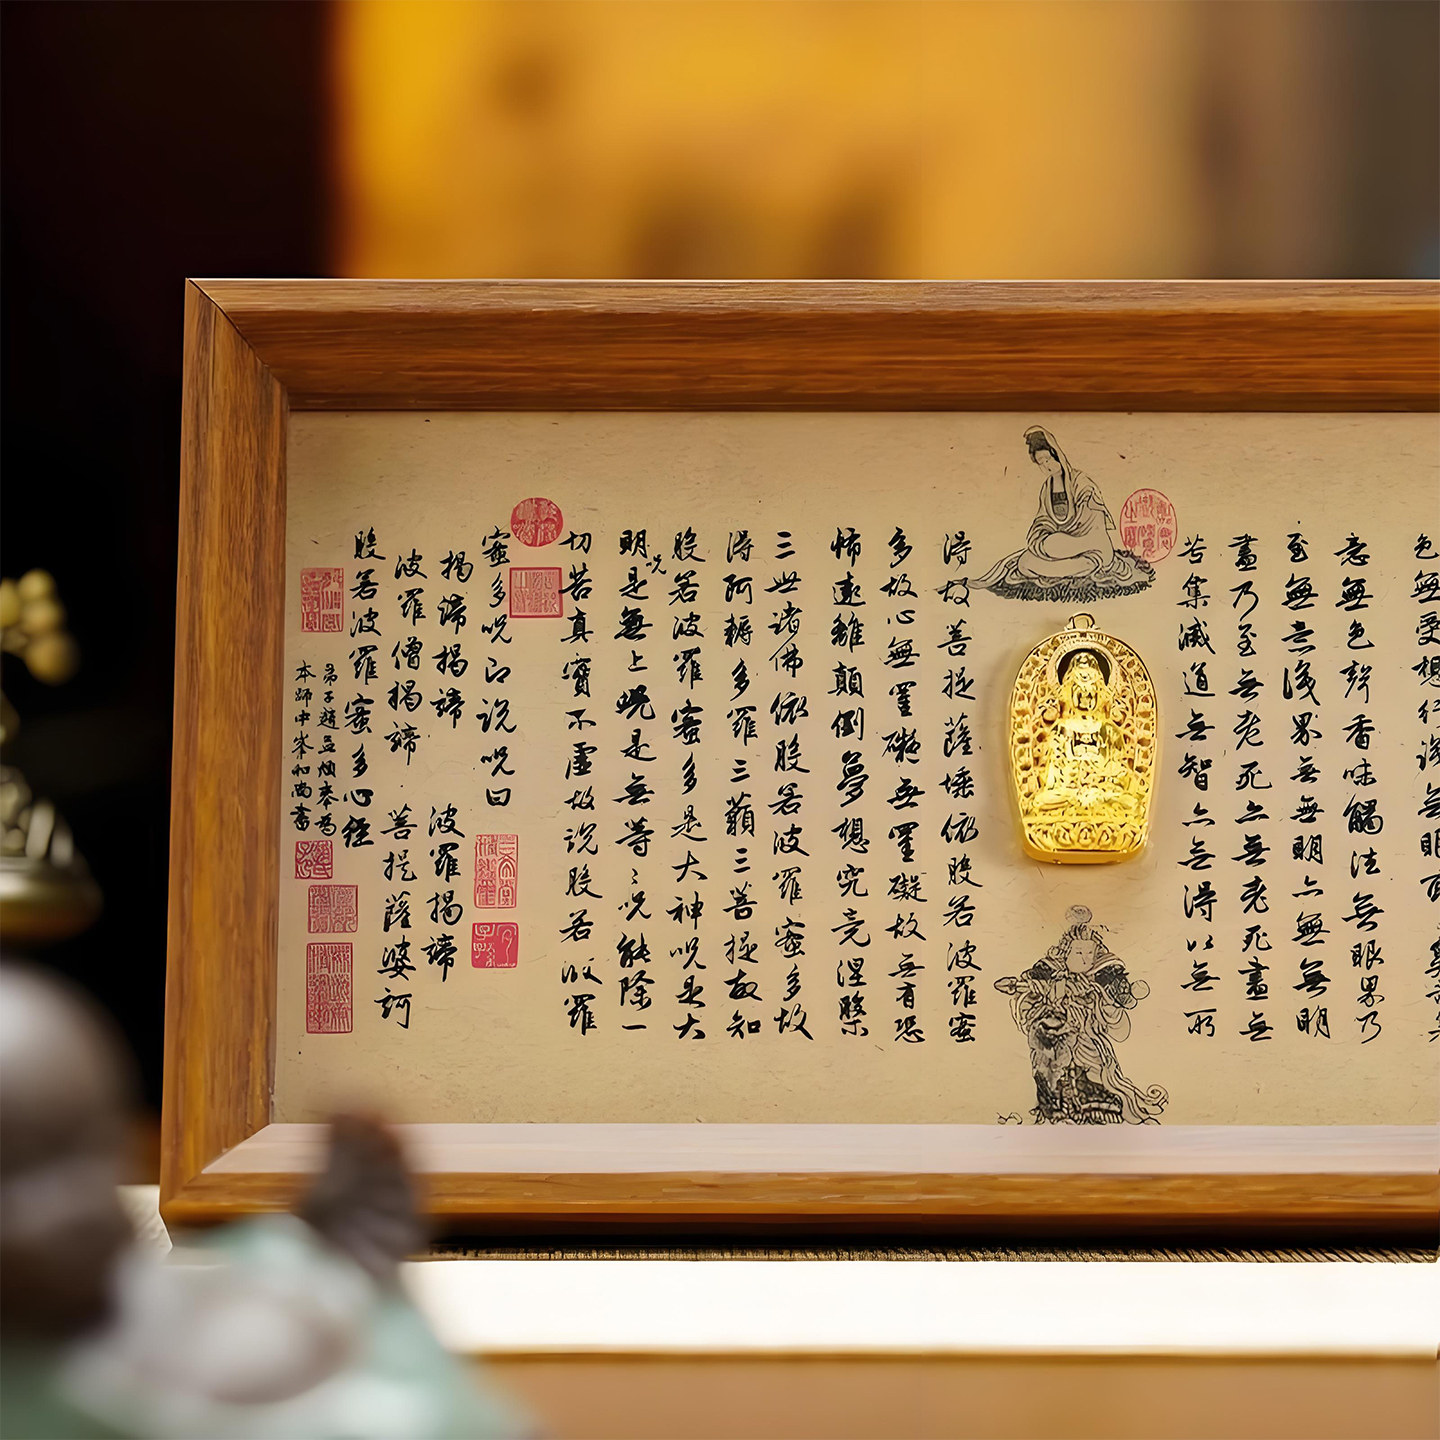 色無受想行識無眼耳鼻舌
意無色聲香味觸法無眼界乃
至無意識界無無明亦無無明
盡乃至無老死亦無老死盡無
苦集滅道無智亦無得以無所
得故菩提薩埵依般若波羅蜜
多故心無罣礙無罣礙故無有恐
怖遠離顛倒夢想究竟涅槃
三世諸佛依般若波羅蜜多故
得阿耨多羅三藐三菩提故知
般若波羅蜜多是大神呪是大
明呪是無上呪是無等等呪能除一
切苦真實不虛故說般若波羅
蜜多呪即說呪曰
揭諦揭諦 波羅揭諦
波羅僧揭諦 菩提薩婆訶
般若波羅蜜多心經
弟子趙孟頫奉為
本師中峯和尚書